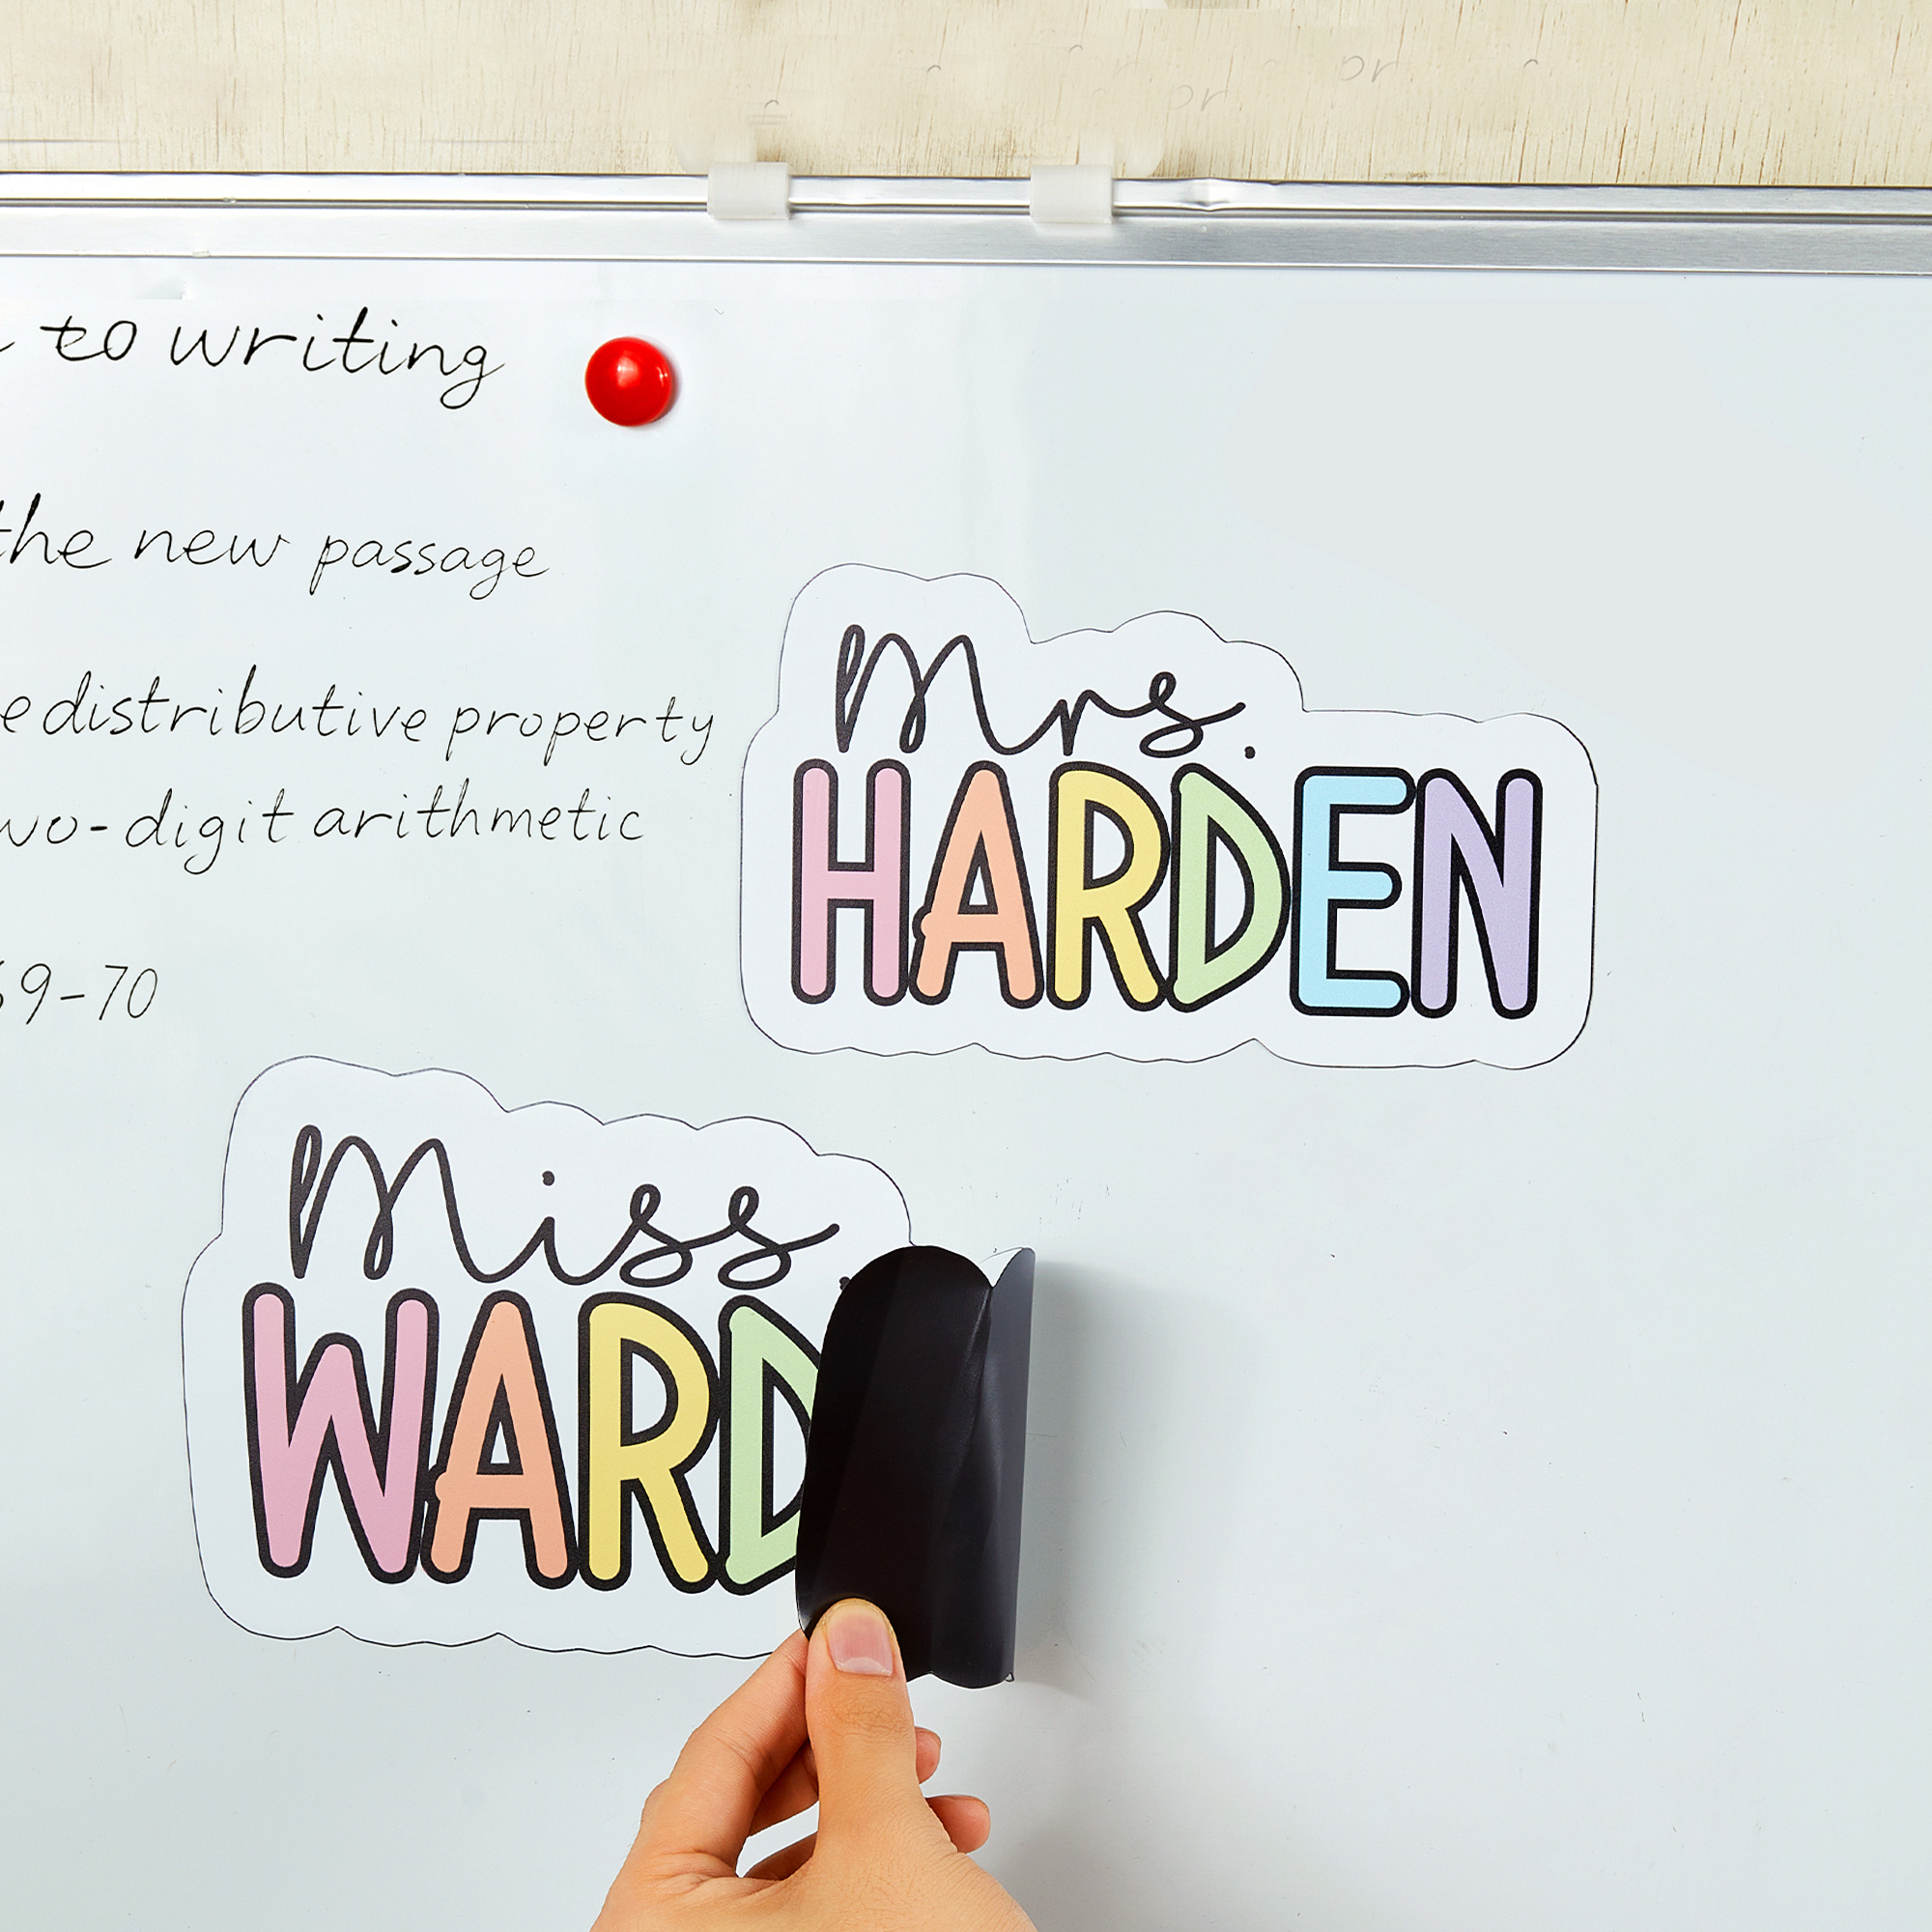 to writing
the new passage
distributive property
two-digit arithmetic
69-70
Mrs.
HARDEN
Miss
WARD